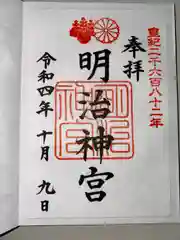 皇紀二千六百八十二年
奉拝
明治神宮
令和四年十月九日